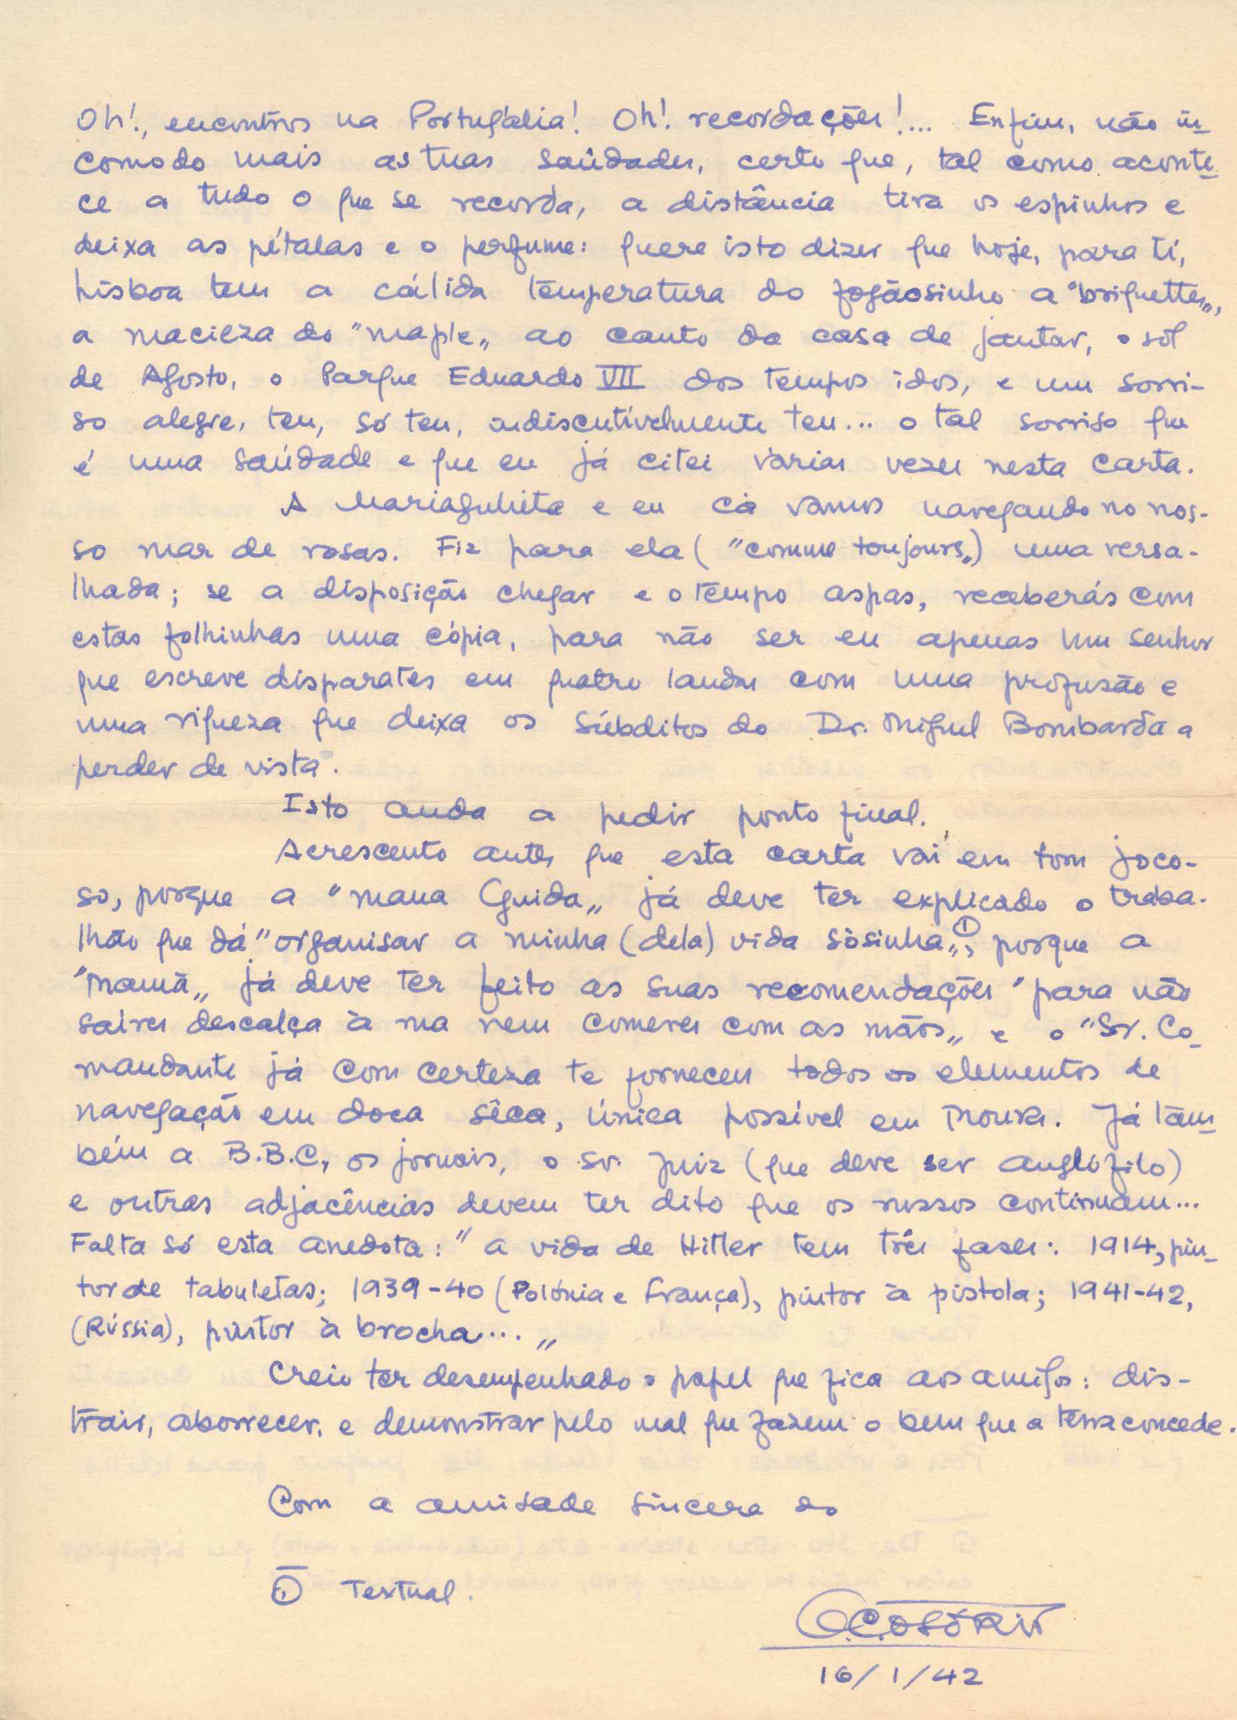 Oh!, encontros na Portugália! Oh! recordações!... Enfim, não in-
comodo mais as tuas saúdades, certo que, tal como aconte-
ce a tudo o que se recorda, a distância tira os espinhos e
deixa as pétalas e o perfume: quere isto dizer que hoje, para ti,
Lisboa tem a cálida temperatura do fogãosinho a "briquettes",
a macieza do "maple" ao canto da casa de jantar, o sol
de Agosto, o Parque Eduardo VII dos tempos idos, e um sorri-
so alegre, teu, só teu, indiscutívelmente teu... o tal sorriso que
é uma saúdade e que eu já citei várias vezes nesta carta.
A Mariagulhita e eu cá vamos navegando no nos-
so mar de rosas. Fiz para ela ("comme toujours") uma versa-
lhada; se a disposição chegar e o tempo aspas, receberás com
estas folhinhas uma cópia, para não ser eu apenas um senhor
que escreve disparates em quatro laudas com uma profusão e
uma riqueza que deixa os súbditos do Dr. Miguel Bombarda a
perder de vista.
Isto anda a pedir ponto final.
Acrescento antes que esta carta vai em tom joco-
so, porque a "mana Guida" já deve ter explicado o traba-
lhão que dá "organisar a minha (dela) vida sòsinha" ①, porque a
"Mamã" já deve ter feito as suas recomendações "para não
saires descalça à rua nem comeres com as mãos" e o "Sr. Co-
mandante já com certeza te forneceu todos os elementos de
navegação em doca sêca, única possível em Moura. Já tam-
bém a B.B.C., os jornais, o Sr. Juiz (que deve ser anglófilo)
e outras adjacências devem ter dito que os russos continuam...
Falta só esta anedota: "a vida de Hitler tem três fases: 1914, pin-
tor de tabuletas; 1939-40 (Polónia e França), pintor à pistola; 1941-42,
(Rússia), pintor à brocha..."
Creio ter desempenhado o papel que fica aos amigos: dis-
trair, aborrecer, e demonstrar pelo mal que fazem o bem que a terra concede.
Com a amisade sincera do
① Textual.
C.OSÓRIO
16/1/42